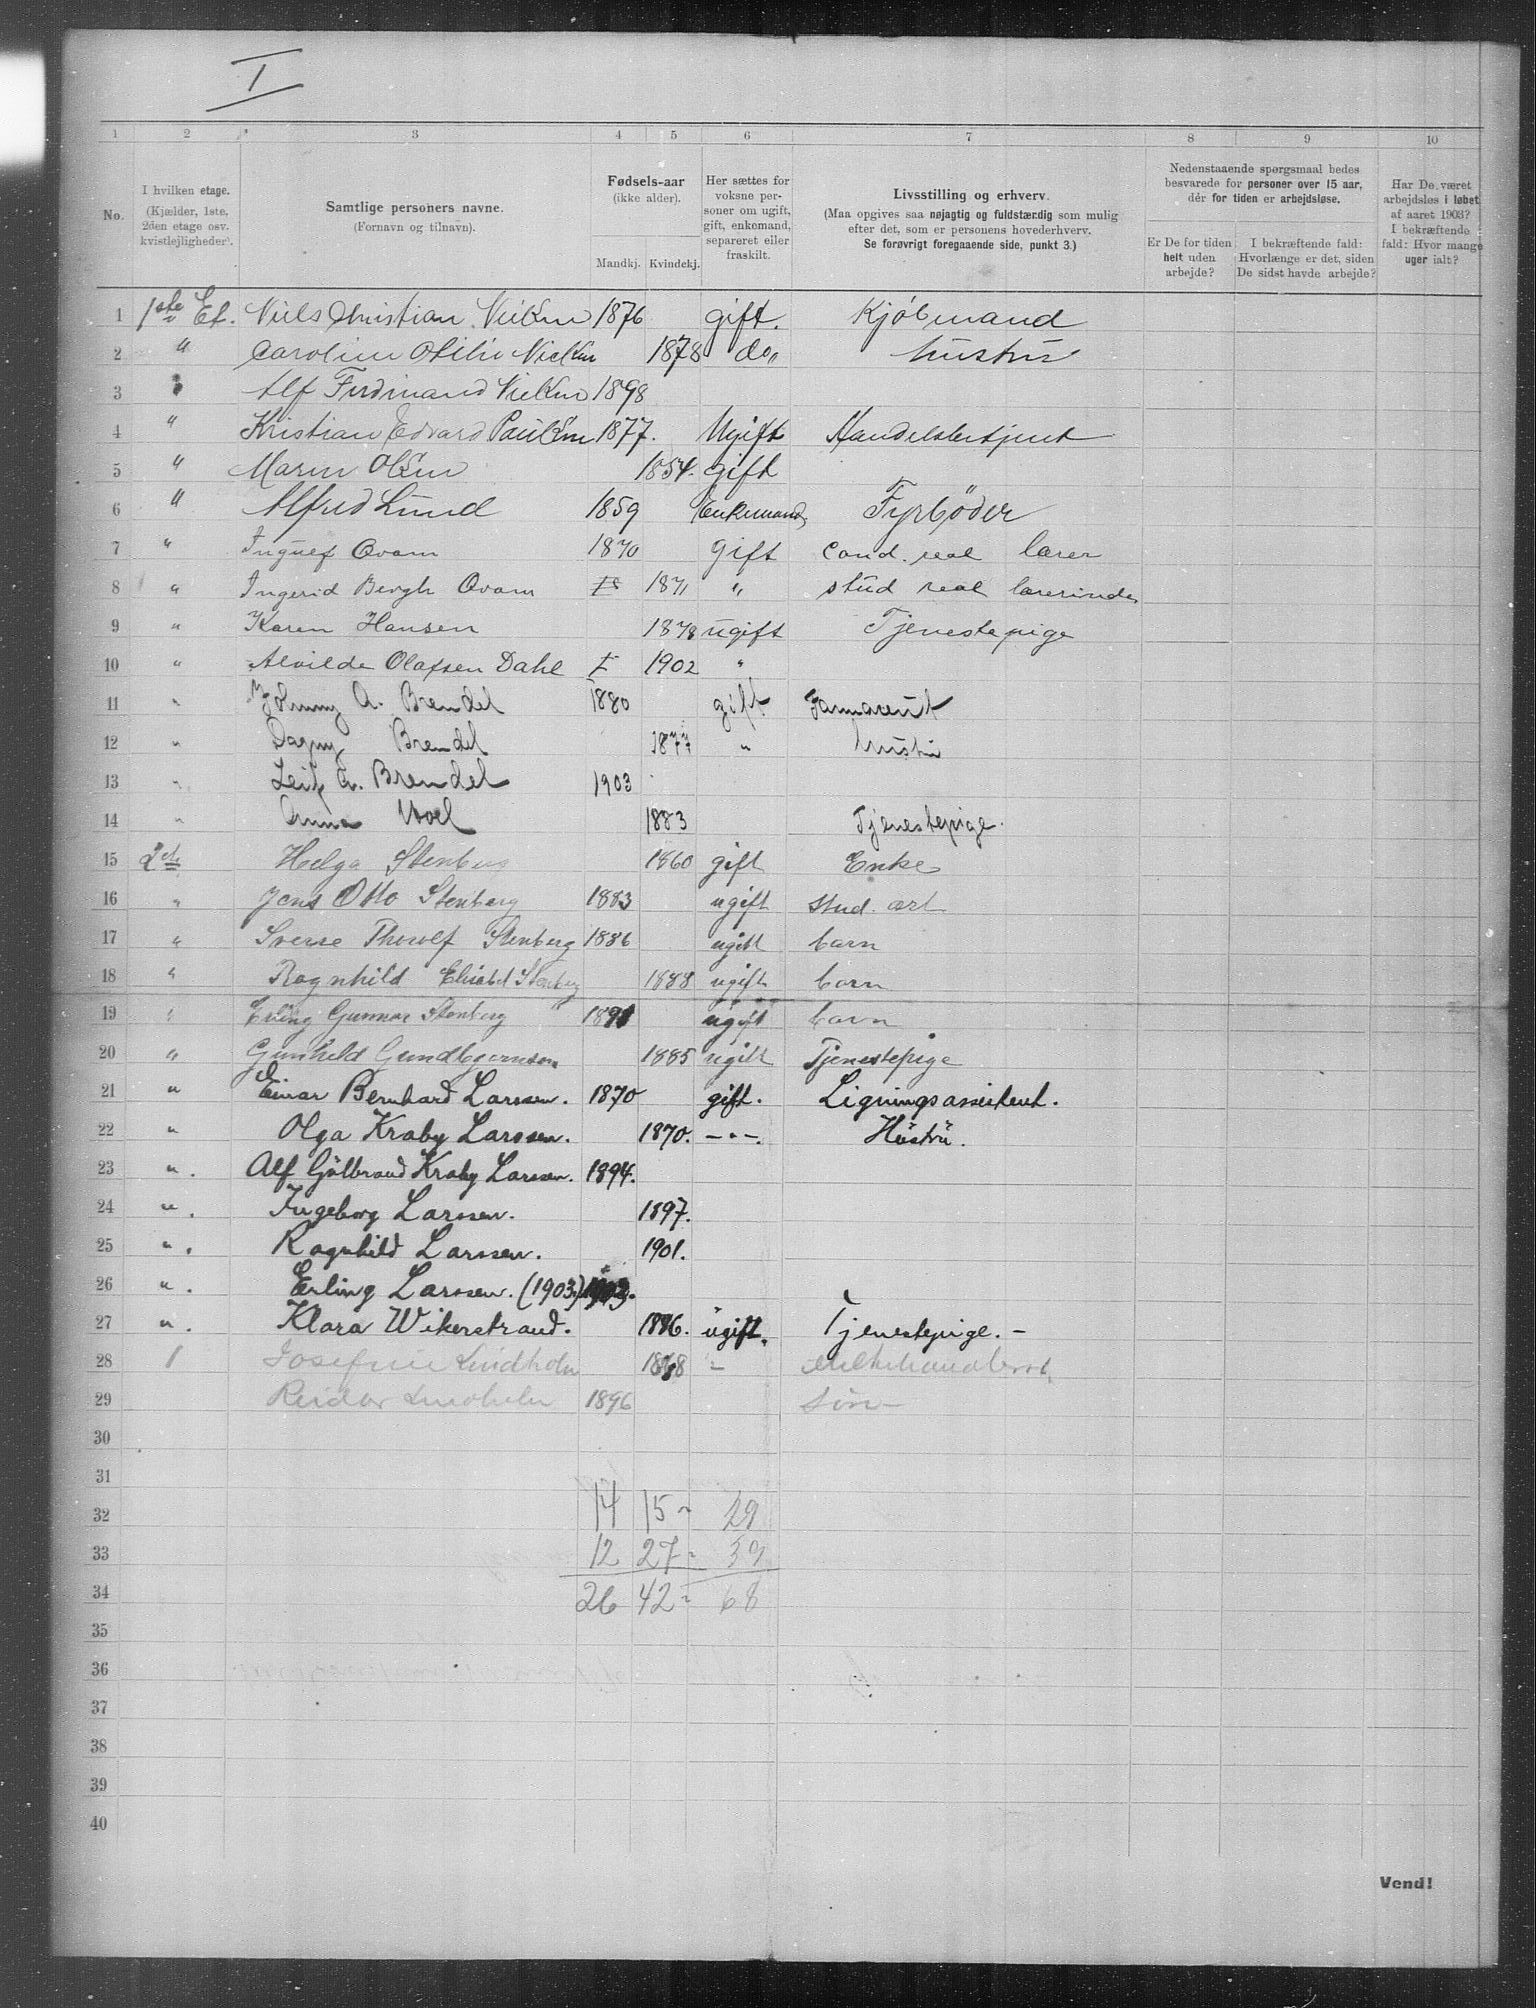 I
1 2 3 4 5 6 7 8 9 10
No.
I hvilken etage.
(Kjælder, 1ste,
2den etage osv.
kvistlejligheder).
Samtlige personers navne.
(Fornavn og tilnavn).
Fødsels-aar
(ikke alder).
Mandkj. Kvindekj.
Her sættes for
voksne per-
soner om ugift,
gift, enkemand,
separeret eller
fraskilt.
Livsstilling og erhverv.
(Maa opgives saa nøjagtig og fuldstærdig som mulig
efter det, som er personens hovederhverv.
Se forøvrigt foregaaende side, punkt 3.)
Nedenstaaende spørgsmaal bedes
besvarede for personer over 15 aar,
dér for tiden er arbejdsløse.
Er De for tiden
helt uden
arbejde?
I bekræftende fald:
Hvorlænge er det, siden
De sidst havde arbejde?
Har De været
arbejdsløs i løbet
af aaret 1903?
I bekræftende
fald: Hvor mange
uger ialt?
1 1ste Et. Niels Christian Nielsen 1876 gift. Kjøbmand
2 " Caroline Otilie Nielsen 1878 do,, hustru
3 " Alf Ferdinand Nielsen 1898
4 " Kristian Edvard Paulsen 1877. Ugift Handelsbetjent
5 " Maren Olsen 1854. gift
6 " Alfred Lund 1859 Enkemand, Fyrbøder
7 " Ingulf Qvam 1870 gift cand. real lærer
8 " Ingerid Bergh Qvam 1871 " stud real lærerinde
9 " Karen Hansen 1878 ugift Tjenestepige
10 " Alvilde Olafsen Dahl 1902 "
11 " Johnny A. Brendel 1880 gift Farmaceut
12 " Dagny Brendel 1877 " hustru
13 " Leif A. Brendel 1903
14 " Anna Moel 1883 Tjenestepige.
15 2 et. Helga Stenberg 1860 gift Enke
16 " Jens Otto Stenberg 1883 ugift stud. art
17 " Sverse Thorolf Stenberg 1886 ugift barn
18 " Ragnhild Elisabet Stenberg 1888 ugift barn
19 " Erling Gunnar Stenberg 1891 ugift barn
20 " Gunhild Gundbjørnsen 1885 ugift Tjenestepige
21 " Einar Bernhard Larssen. 1870 gift. Ligningsassistent.
22 " Olga Kraby Larssen. 1870. —"—. Hustru.
23 ". Alf Gulbrand Kraby Larssen. 1894.
24 ". Ingeborg Larssen. 1897.
25 ". Ragnhild Larssen. 1901.
26 ". Erling Larssen. (1903.) 1903.
27 ". Klara Wikerstrand. 1886. ugift. Tjenestepige. —
28 Josefine Lindholm 1868 -
29 Reidar Lindholm 1896 søn
30
31
32 14 15 - 29
33 12 27 - 39
34 26 42 - 68
35
36
37
38
39
40
Vend!